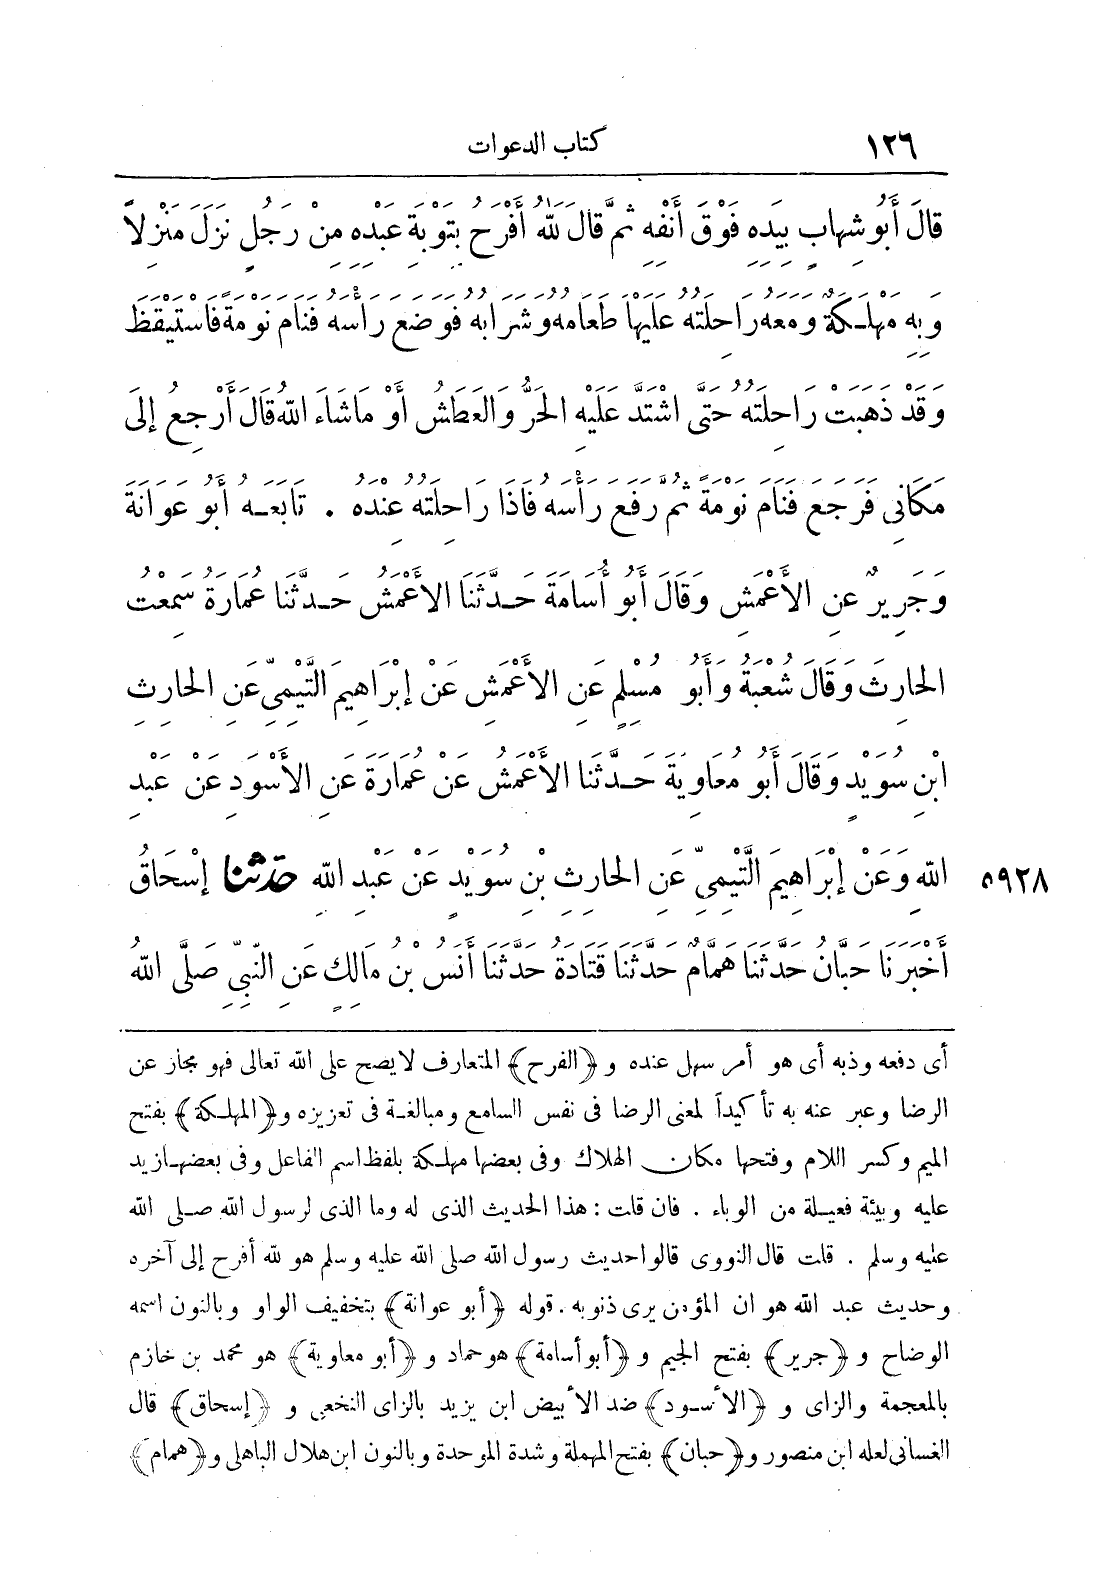 ١٢٦ كتاب الدعوات
قَالَ أَبُو شِهَابٍ بِيَدِهِ فَوْقَ أَنْفِهِ ثُمَّ قَالَ لَلَّهُ أَفْرَحُ بِتَوْبَةِ عَبْدِهِ مِنْ رَجُلٍ نَزَلَ مَنْزِلاً
وَبِهِ مَهْلَكَةٌ وَمَعَهُ رَاحِلَتُهُ عَلَيْهَا طَعَامُهُ وَشَرَابُهُ فَوَضَعَ رَأْسَهُ فَنَامَ نَوْمَةً فَاسْتَيْقَظَ
وَقَدْ ذَهَبَتْ رَاحِلَتُهُ حَتَّى اشْتَدَّ عَلَيْهِ الحَرُّ وَالعَطَشُ أَوْ مَا شَاءَ اللهُ قَالَ أَرْجِعُ إِلَى
مَكَانِى فَرَجَعَ فَنَامَ نَوْمَةً ثُمَّ رَفَعَ رَأْسَهُ فَاذَا رَاحِلَتُهُ عِنْدَهُ . تَابَعَهُ أَبُو عَوَانَةَ
وَجَرِيرٌ عَنِ الأَعْمَشِ وَقَالَ أَبُو أُسَامَةَ حَدَّثَنَا الاَعْمَشُ حَدَّثَنَا عُمَارَةُ سَمِعْتُ
الحَارِثَ وَقَالَ شُعْبَةُ وَأَبُو مُسْلِمٍ عَنِ الأَعْمَشِ عَنْ إِبْرَاهِيمَ التَّيْمِىِّ عَنِ الحَارِثِ
ابْنِ سُوَيْدٍ وَقَالَ أَبُو مُعَاوِيَةَ حَدَّثَنَا الأَعْمَشُ عَنْ عُمَارَةَ عَنِ الأَسْوَدِ عَنْ عَبْدِ
اللهِ وَعَنْ إِبْرَاهِيمَ التَّيْمِىِّ عَنِ الحَارِثِ بْنِ سُوَيْدٍ عَنْ عَبْدِ اللهِ حَدَّثَنَا إِسْحَاقُ ٥٩٢٨
أَخْبَرَنَا حَبَّانُ حَدَّثَنَا هَمَّامٌ حَدَّثَنَا قَتَادَةُ حَدَّثَنَا أَنَسُ بْنُ مَالِكٍ عَنِ النَّبِىِّ صَلَّى اللهُ
أى دفعه وذبه أى هو أمر سهل عنده و﴿الفرح﴾ المتعارف لا يصح على الله تعالى فهو مجاز عن
الرضا وعبر عنه به تأكيداً لمعنى الرضا فى نفس السامع ومبالغة فى تعزيزه و﴿المهلكة﴾ بفتح
الميم وكسر اللام وفتحها مكان الهلاك وفى بعضها مهلكة بلفظ اسم الفاعل وفى بعضها زيد
عليه وبيئة فعيلة من الوباء . فان قلت : هذا الحديث الذى له وما الذى لرسول الله صلى الله
عليه وسلم . قلت قال النووى قالوا حديث رسول الله صلى الله عليه وسلم هو لله أفرح إلى آخره
وحديث عبد الله هو ان المؤمن يرى ذنوبه . قوله ﴿أبو عوانة﴾ بتخفيف الواو وبالنون اسمه
الوضاح و﴿جرير﴾ بفتح الجيم و﴿أبو أسامة﴾ هو حماد و﴿أبو معاوية﴾ هو محمد بن خازم
بالمعجمة والزاى و﴿الأسود﴾ ضد الأبيض ابن يزيد بالزاى النخعى و﴿إسحاق﴾ قال
الغسانى لعله ابن منصور و﴿حبان﴾ بفتح المهملة وشدة الموحدة وبالنون ابن هلال الباهلى و﴿همام﴾